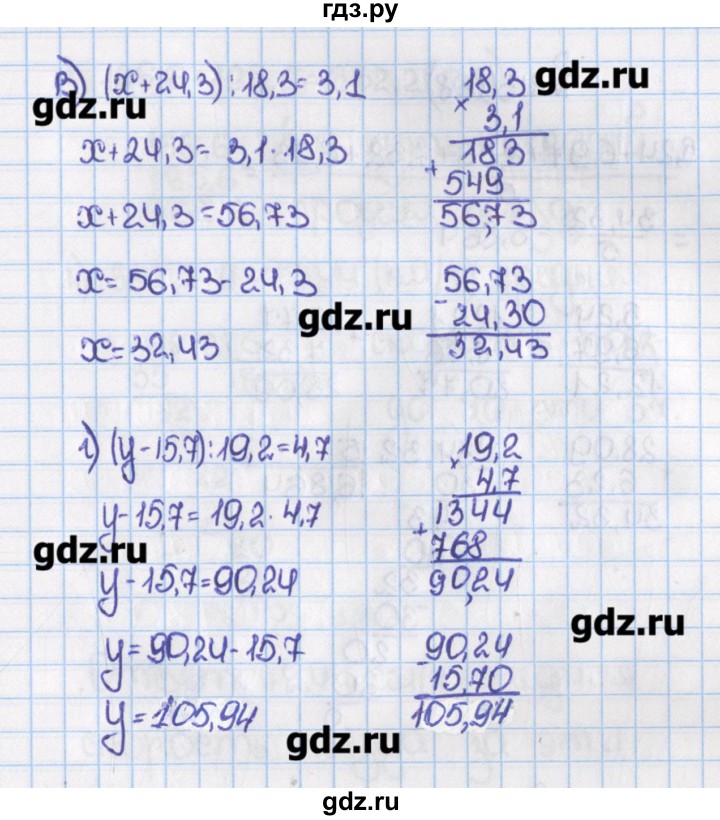 гдз.ру
в) (x+24,3):18,3=3,1
x+24,3= 3,1·18,3
x+24,3=56,73
x=56,73-24,3
x=32,43
× 18,3
3,1
183
+ 549
56,73
56,73
- 24,30
32,43
г) (y-15,7):19,2=4,7
y-15,7=19,2·4,7
y-15,7=90,24
y=90,24-15,7
y=105,94
19,2
× 4,7
1344
+ 768
90,24
- 90,24
15,70
105,94
gdz.ru
gdz.ru
gdz.ru
gdz.ru
gdz.ru
gdz.ru
gdz.ru